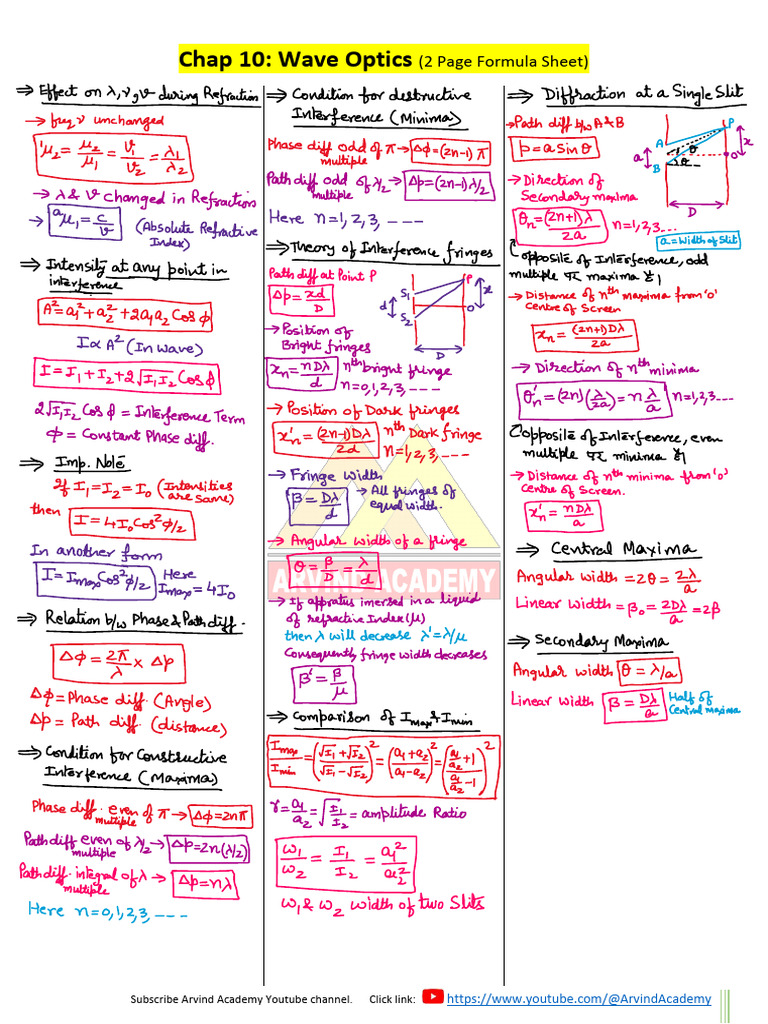 Chap 10: Wave Optics (2 Page Formula Sheet)
⇒ Effect on λ, ν, v during Refraction
→ freq ν unchanged
¹μ₂ = μ₂/μ₁ = v₁/v₂ = λ₁/λ₂
→ λ & v changed in Refraction
→ ᵃμ₁ = c/v (Absolute Refractive Index)
⇒ Intensity at any point in
interference
A² = a₁² + a₂² + 2a₁a₂ Cos φ
I ∝ A² (In wave)
I = I₁ + I₂ + 2√I₁I₂ Cos φ
2√I₁I₂ Cos φ = Interference Term
φ = Constant Phase diff.
⇒ Imp. Note
If I₁ = I₂ = I₀ (Intensities are same)
then
I = 4I₀ Cos² φ/2
In another form
I = Imax Cos² φ/2 Here Imax = 4I₀
⇒ Relation b/w Phase & Path diff.
Δφ = 2π/λ × Δp
Δφ = Phase diff. (Angle)
Δp = Path diff. (distance)
⇒ Condition for Constructive
Interference (Maxima)
Phase diff. even multiple of π → Δφ = 2nπ
Path diff even multiple of λ/2 → Δp = 2n(λ/2)
Path diff. integral multiple of λ → Δp = nλ
Here n = 0, 1, 2, 3, ----
⇒ Condition for destructive
Interference (Minima)
Phase diff odd multiple of π → Δφ = (2n-1) π
Path diff odd multiple of λ/2 → Δp = (2n-1) λ/2
Here n = 1, 2, 3, ----
⇒ Theory of Interference fringes
Path diff at Point P
Δp = xd/D
S₁ S₂ d P x O D
→ Position of
Bright fringes
xₙ = nDλ/d nth bright fringe
n = 0, 1, 2, 3, ----
→ Position of Dark fringes
x'ₙ = (2n-1)Dλ/2d nth Dark fringe
n = 1, 2, 3, ----
→ Fringe width
β = Dλ/d → All fringes of equal width.
→ Angular width of a fringe
θ = β/D = λ/d
ARVIND ACADEMY
→ If appratus imersed in a liquid
of refractive Index (μ)
then λ will decrease λ' = λ/μ
Consequently fringe width decreases
β' = β/μ
⇒ Comparison of Imax & Imin
Imax/Imin = (√I₁+√I₂/√I₁-√I₂)² = (a₁+a₂/a₁-a₂)² = (a₁/a₂+1/a₁/a₂-1)²
r = a₁/a₂ = √I₁/I₂ = amplitude Ratio
w₁/w₂ = I₁/I₂ = a₁²/a₂²
w₁ & w₂ width of two Slits
⇒ Diffraction at a Single Slit
→ Path diff b/w A & B
p = a sin θ
A B a θ θ P x O D
→ Direction of
Secondary maxima
θₙ = (2n+1)λ/2a n = 1, 2, 3...
a = width of Slit
opposite of Interference, odd
multiple पर maxima है।
→ Distance of nth maxima from 'o'
Centre of Screen
xₙ = (2n+1)Dλ/2a
→ Direction of nth minima
θ'ₙ = (2n)(λ/2a) = n λ/a n = 1, 2, 3...
opposite of Interference, even
multiple पर minima है।
→ Distance of nth minima from 'o'
Centre of Screen.
x'ₙ = nDλ/a
⇒ Central Maxima
Angular width = 2θ = 2λ/a
Linear width = β₀ = 2Dλ/a = 2β
⇒ Secondary Maxima
Angular width θ = λ/a
Linear width β = Dλ/a Half of Central maxima
Subscribe Arvind Academy Youtube channel. Click link: https://www.youtube.com/@ArvindAcademy